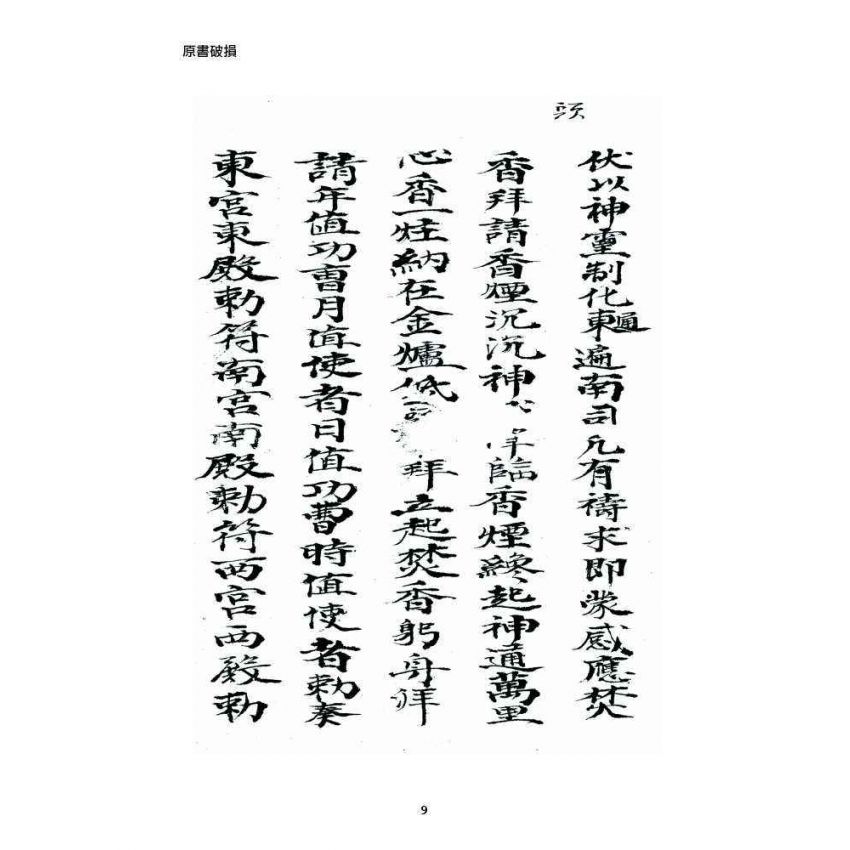 原書破損
頭
伏以神靈制化東通遍南司凡有禱求即蒙感應焚
香拜請香煙沉沉神臨香煙纔起神通萬里
心香一炷納在金爐低拜立起焚香躬身拜
請年值功曹月值使者日值功曹時值使者勅奏
東宮東殿勅符南宮南殿勅符西宮西殿勅
9